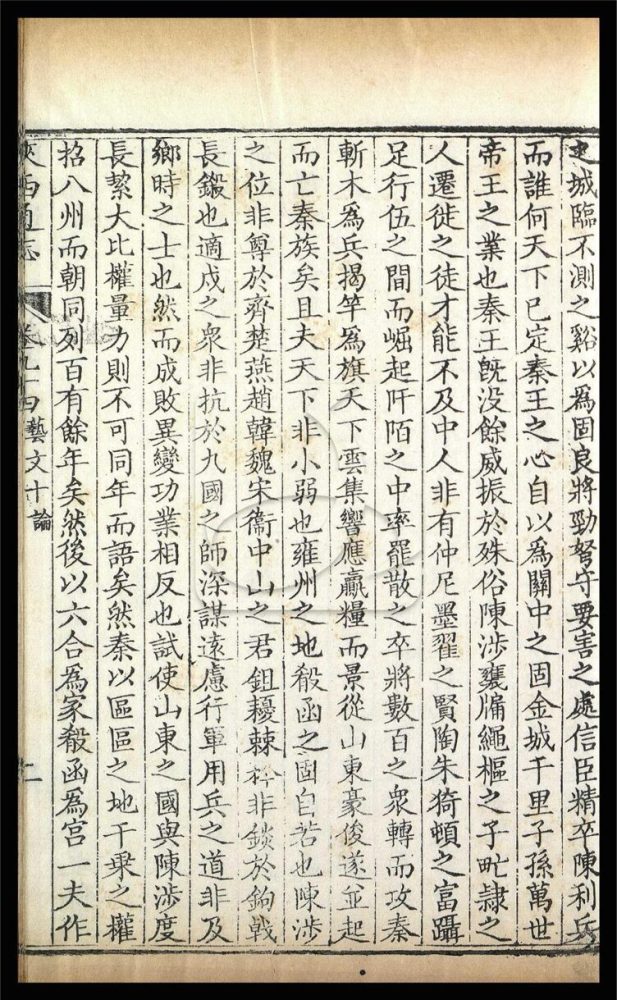 城臨不測之谿以爲固良將勁弩守要害之處信臣精卒陳利兵
而誰何天下已定秦王之心自以爲關中之固金城千里子孫萬世
帝王之業也秦王旣没餘威振於殊俗陳涉甕牖繩樞之子甿隷之
人遷徙之徒才能不及中人非有仲尼墨翟之賢陶朱猗頓之富躡
足行伍之間而崛起阡陌之中率罷散之卒將數百之衆轉而攻秦
斬木爲兵揭竿爲旗天下雲集響應贏糧而景從山東豪俊遂並起
而亡秦族矣且夫天下非小弱也雍州之地殽函之固自若也陳涉
之位非尊於齊楚燕趙韓魏宋衞中山之君鉏耰棘矜非錟於鉤戟
長鍛也適戍之衆非抗於九國之師深謀遠慮行軍用兵之道非及
鄉時之士也然而成敗異變功業相反也試使山東之國與陳涉度
長絜大比權量力則不可同年而語矣然秦以區區之地千乗之權
招八州而朝同列百有餘年矣然後以六合爲家殽函爲宫一夫作
陝西通志 卷九十四藝文十論 二